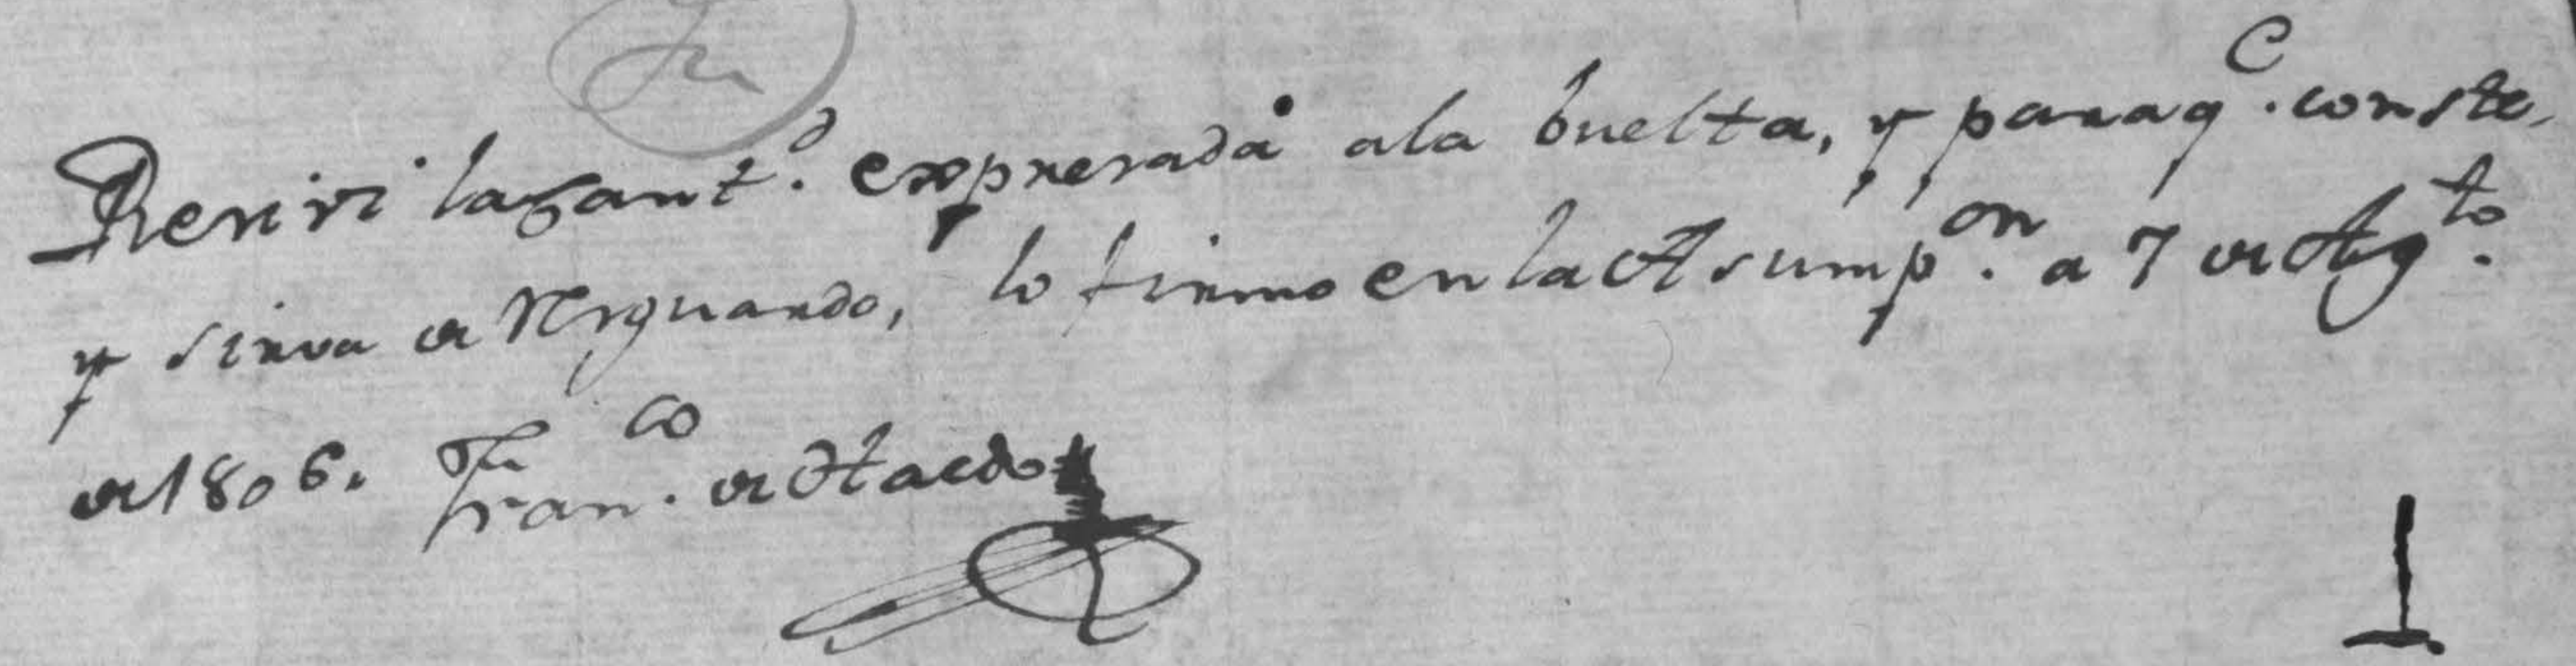 Resivi la cant.d expresada ala buelta, y paraq.e conste,
y sirva de Resguardo, lo firmo en la Asump.on a 7 de Ag.to
de 1806. Fran.co de Haedo